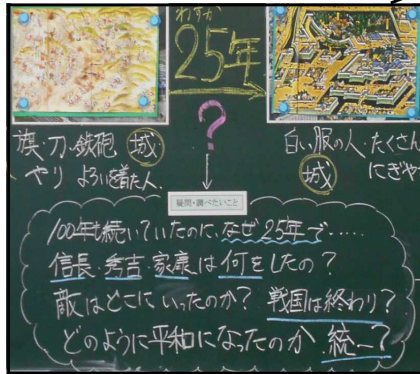 わずか
25年
?
旗・刀・鉄砲 城
やり よろいを着た人
白い服の人・たくさん
城 にぎや
疑問・調べたいこと
100年も続いていたのに、なぜ25年で……
信長 秀吉 家康は何をしたの?
敵はどこにいったのか? 戦国は終わり?
どのように平和になったのか 統一?